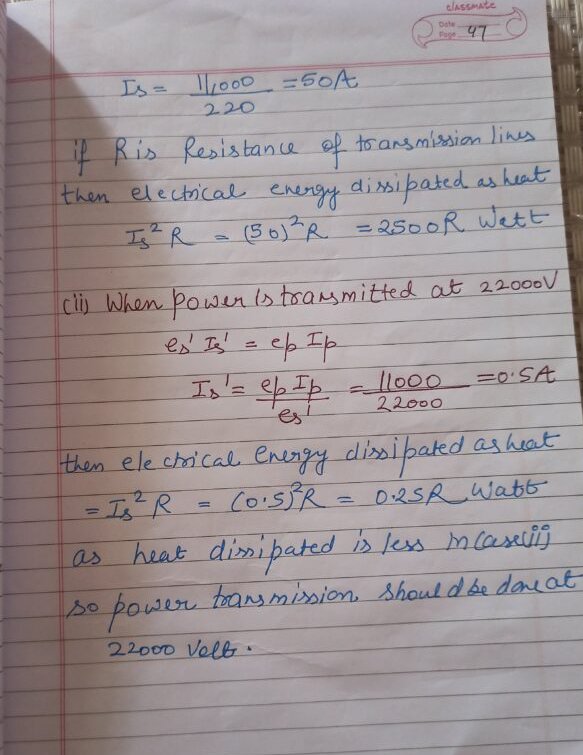 classmate
Date
Page 47
Is = 11000 / 220 = 50A
if R is Resistance of transmission lines
then electrical energy dissipated as heat
Is²R = (50)²R = 2500R Watt
(ii) When power is transmitted at 22000V
es' Is' = ep Ip
Is' = ep Ip / es' = 11000 / 22000 = 0.5A
then electrical energy dissipated as heat
= Is²R = (0.5)²R = 0.25R Watt
as heat dissipated is less in case(ii)
so power transmission should be done at
22000 Volt.